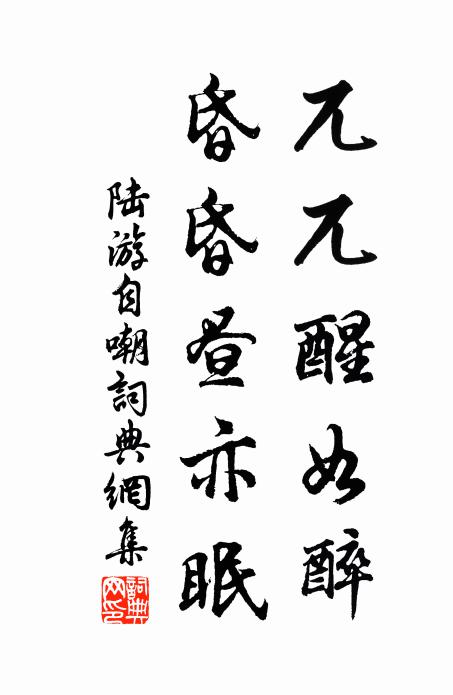 兀兀醒如醉
昏昏昼亦眠
陆游自嘲詞典網集
詞典网印